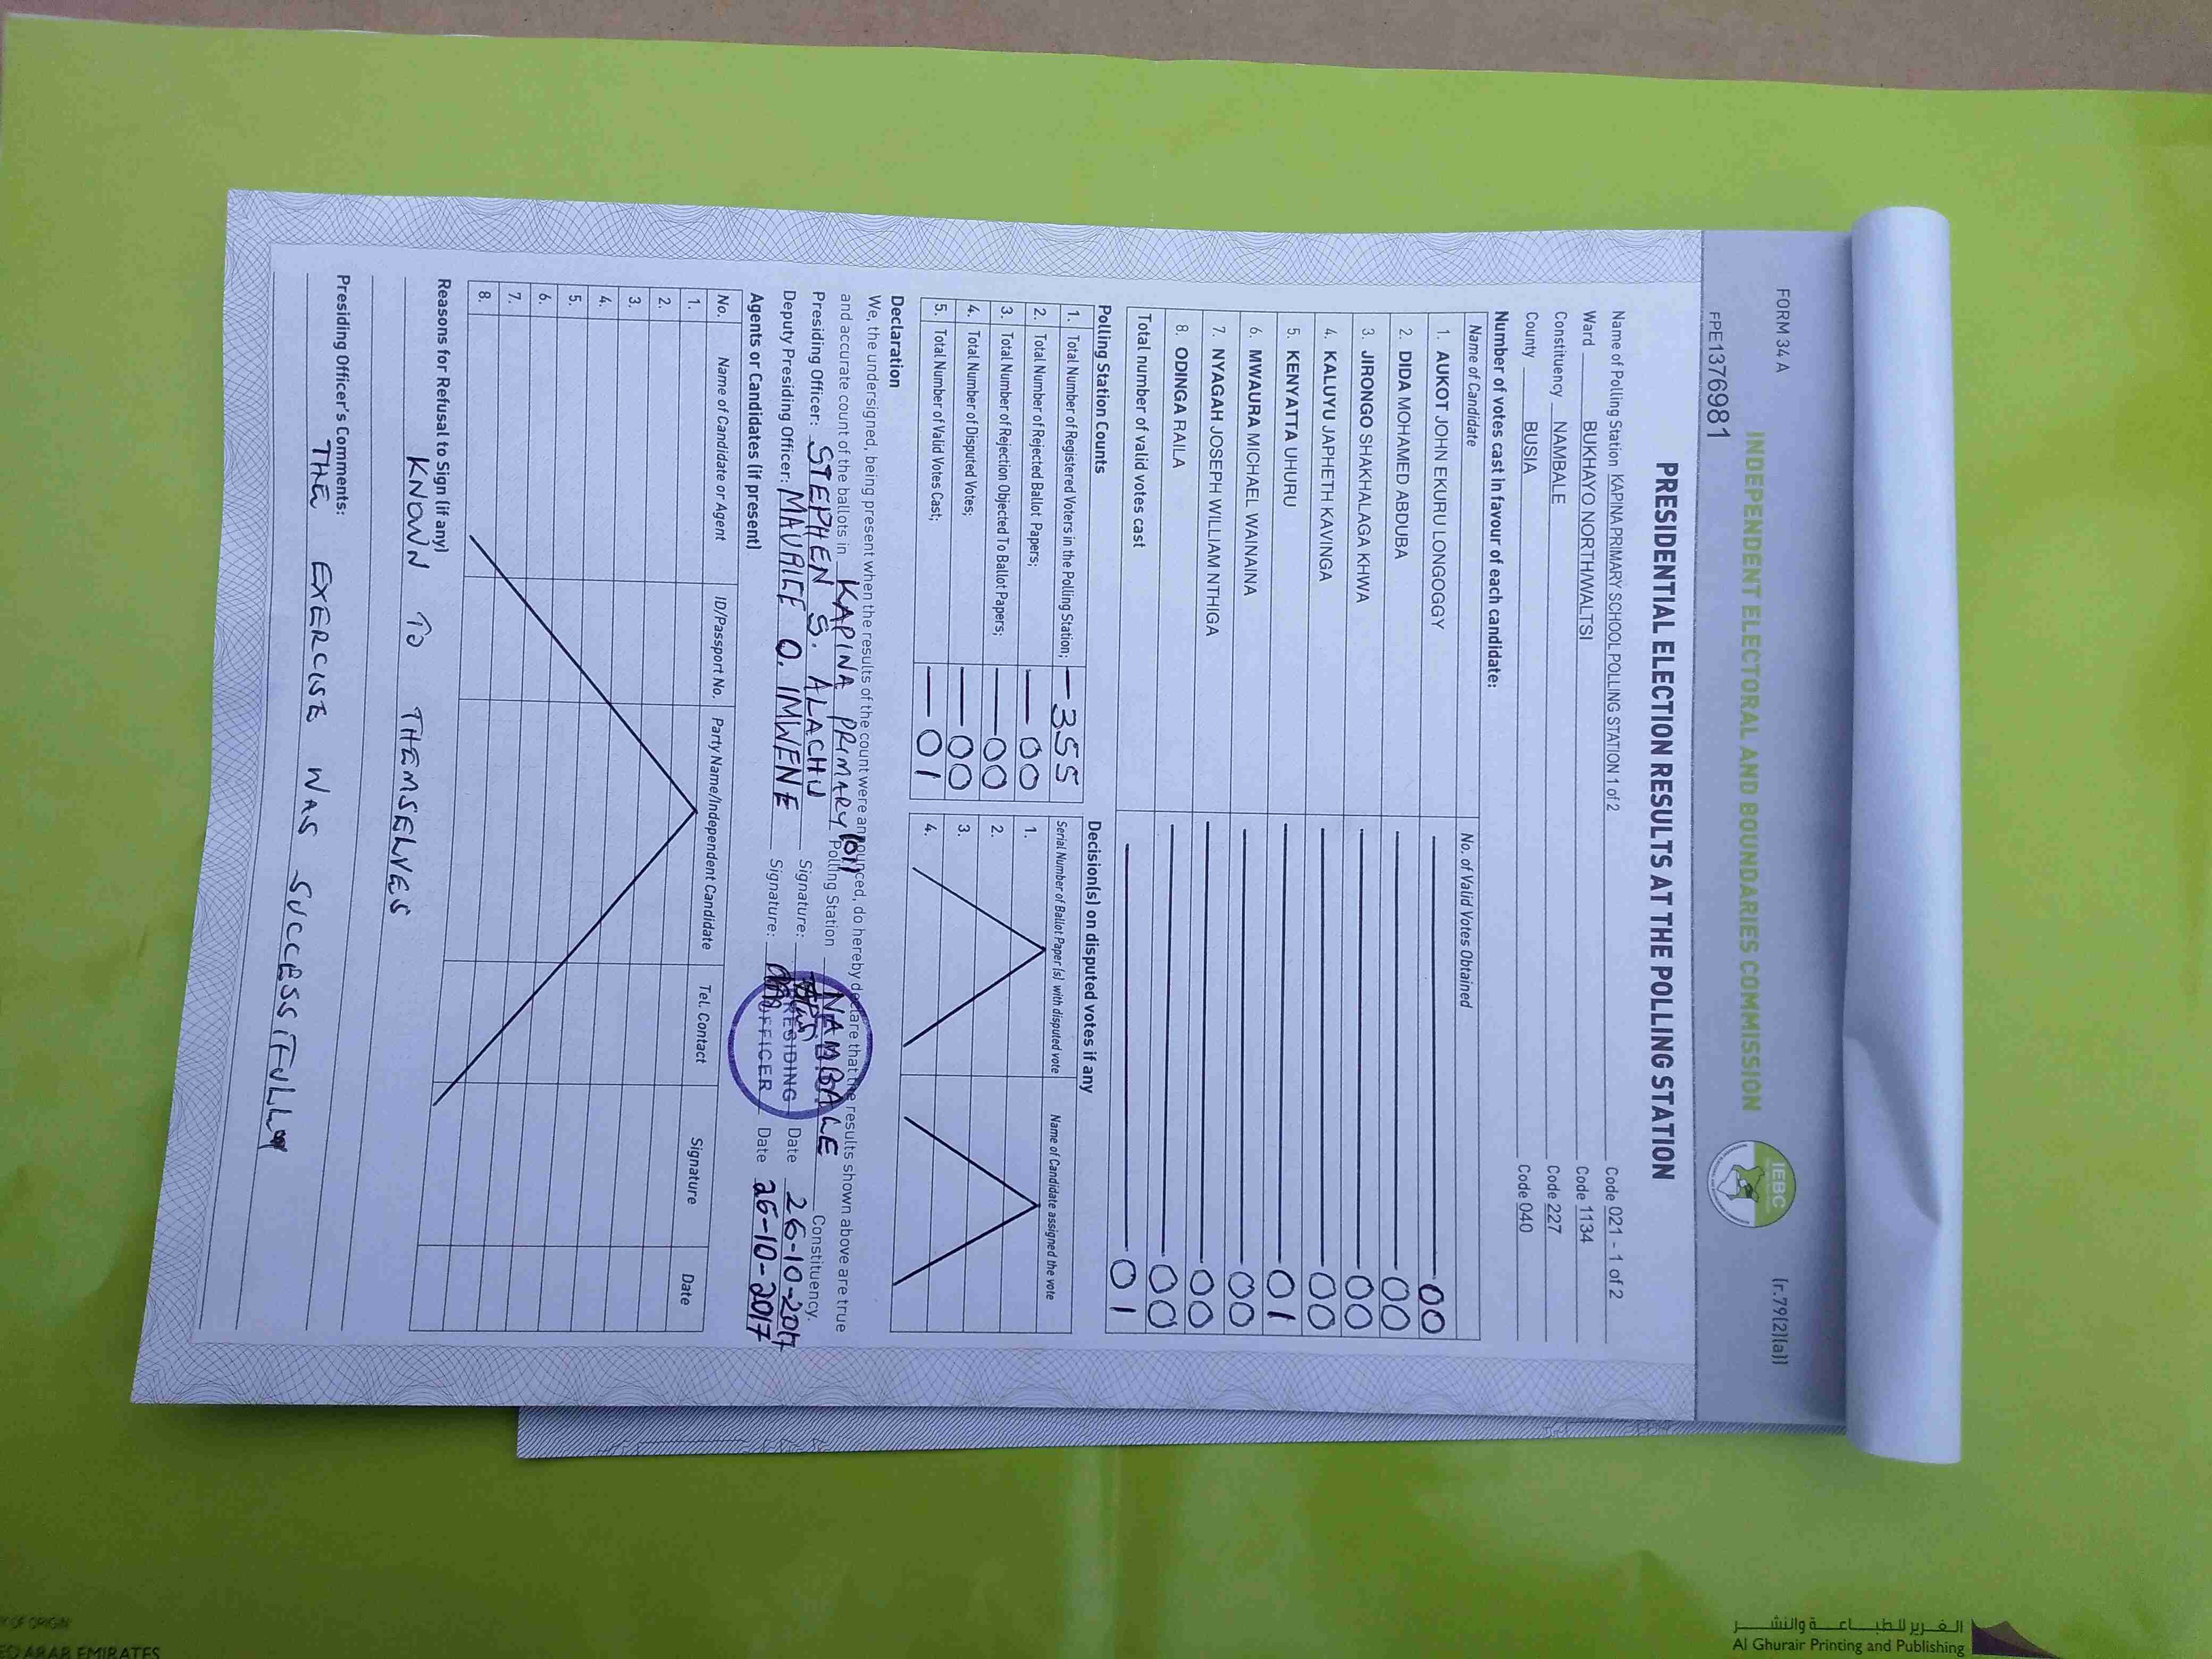 FORM 34 A
(r.79(2)(a))
INDEPENDENT ELECTORAL AND BOUNDARIES COMMISSION
IEBC
FPE1376981
PRESIDENTIAL ELECTION RESULTS AT THE POLLING STATION
Name of Polling Station KAPINA PRIMARY SCHOOL POLLING STATION 1 of 2 Code 021 - 1 of 2
Ward BUKHAYO NORTH/WALTSI Code 1134
Constituency NAMBALE Code 227
County BUSIA Code 040
Number of votes cast in favour of each candidate:
Name of Candidate No. of Valid Votes Obtained
1. AUKOT JOHN EKURU LONGOGGY 00
2. DIDA MOHAMED ABDUBA 00
3. JIRONGO SHAKHALAGA KHWA 00
4. KALUYU JAPHETH KAVINGA 00
5. KENYATTA UHURU 01
6. MWAURA MICHAEL WAINAINA 00
7. NYAGAH JOSEPH WILLIAM NTHIGA 00
8. ODINGA RAILA 00
Total number of valid votes cast 01
Polling Station Counts
1. Total Number of Registered Voters in the Polling Station; 355
2. Total Number of Rejected Ballot Papers; 00
3. Total Number of Rejection Objected To Ballot Papers; 00
4. Total Number of Disputed Votes; 00
5. Total Number of Valid Votes Cast; 01
Decision(s) on disputed votes if any
Serial Number of Ballot Paper (s) with disputed vote Name of Candidate assigned the vote
1.
2.
3.
4.
Declaration
We, the undersigned, being present when the results of the count were announced, do hereby declare that the results shown above are true
and accurate count of the ballots in KAPINA PRIMARY (01) Polling Station NAMBALE Constituency.
Presiding Officer: STEPHEN S. ALACHU Signature: Date 26-10-2017
Deputy Presiding Officer: MAURICE O. IMWENE Signature: Date 26-10-2017
PRESIDING
OFFICER
Agents or Candidates (if present)
No. Name of Candidate or Agent ID/Passport No. Party Name/Independent Candidate Tel. Contact Signature Date
1.
2.
3.
4.
5.
6.
7.
8.
Reasons for Refusal to Sign (if any)
KNOWN TO THEMSELVES
Presiding Officer's Comments:
THE EXERCISE WAS SUCCESSIFULLY
الغرير للطباعة والنشر
Al Ghurair Printing and Publishing
OF ORIGIN
ARAB EMIRATES